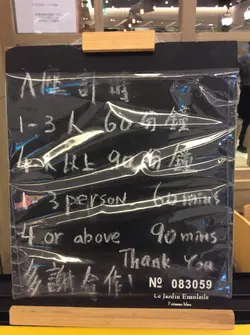 1-3人 60分鐘
4人以上 90分鐘
3 person 60 mins
4 or above 90 mins
Thank You
多謝合作!
Nº 083059
Le Jardin Ensoleille